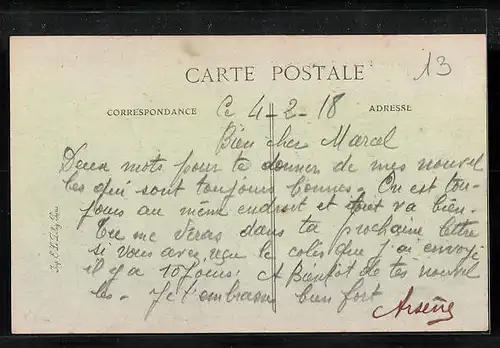 13
CARTE POSTALE
CORRESPONDANCE
ADRESSE
Ce 4-2-18
Bien cher Marcel
Deux mots pour te donner de mes nouvel
les qui sont toujours bonnes. On est tou-
jours au même endroit et tout va bien.
Tu me diras dans ta prochaine lettre
si vous avez reçu le colis que j'ai envoyé
il y a 10 jours. A Bientôt de tes nouvel
les. Je t'embrasse bien fort
Arsène